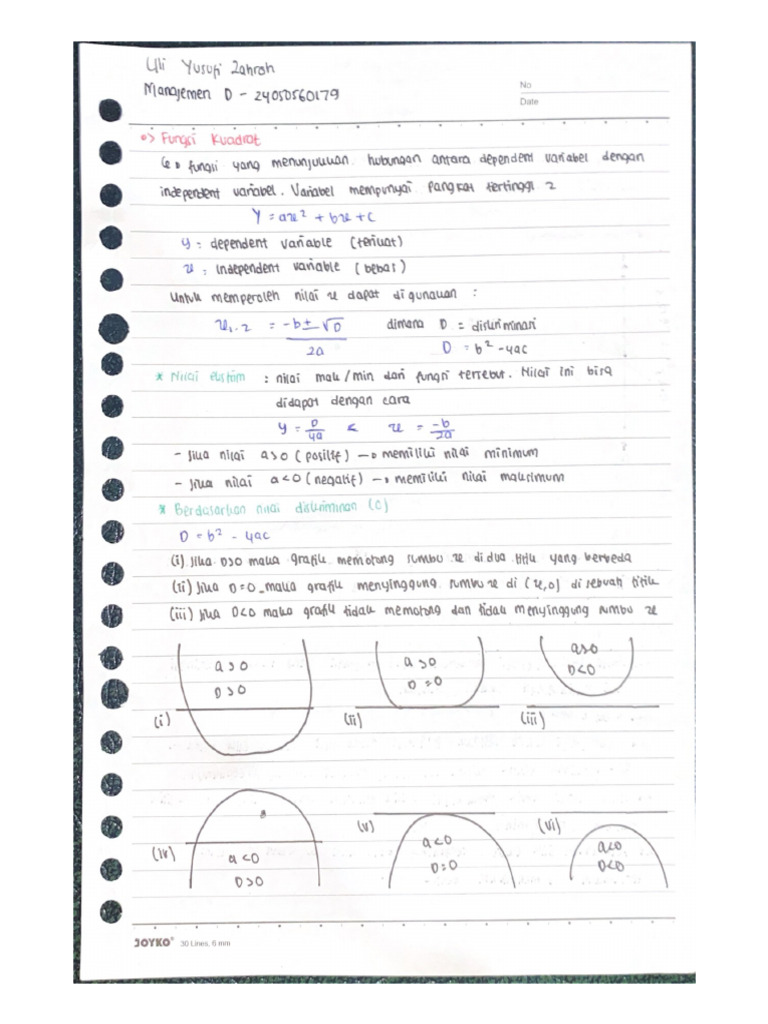 Uli Yusufi Zahrah
Manajemen D - 24050560179
No
Date
Fungsi Kuadrat
fungsi yang menunjukkan hubungan antara dependent variabel dengan
independent variabel. Variabel mempunyai pangkat tertinggi 2
Y = ax² + bx + c
y : dependent variable (terikat)
x : independent variable (bebas)
Untuk memperoleh nilai x dapat digunakan :
x₁.₂ = -b ± √D / 2a dimana D = diskriminan
D = b² - 4ac
* Nilai ekstrim : nilai mak/min dari fungsi tersebut. Nilai ini bisa
didapat dengan cara
y = D/4a & x = -b/2a
- Jika nilai a > 0 (positif) → memiliki nilai minimum
- Jika nilai a < 0 (negatif) → memiliki nilai maksimum
* Berdasarkan nilai diskriminan (D)
D = b² - 4ac
(i) Jika D>0 maka grafik memotong sumbu x di dua titik yang berbeda
(ii) Jika D=0 maka grafik menyinggung sumbu x di (x,0) di sebuah titik
(iii) Jika D<0 maka grafik tidak memotong dan tidak menyinggung sumbu x
(i) a > 0
D > 0
(ii) a > 0
D = 0
(iii) a>0
D<0
(iv) a < 0
D > 0
(v) a < 0
D = 0
(vi) a<0
D<0
JOYKO® 30 Lines, 6 mm